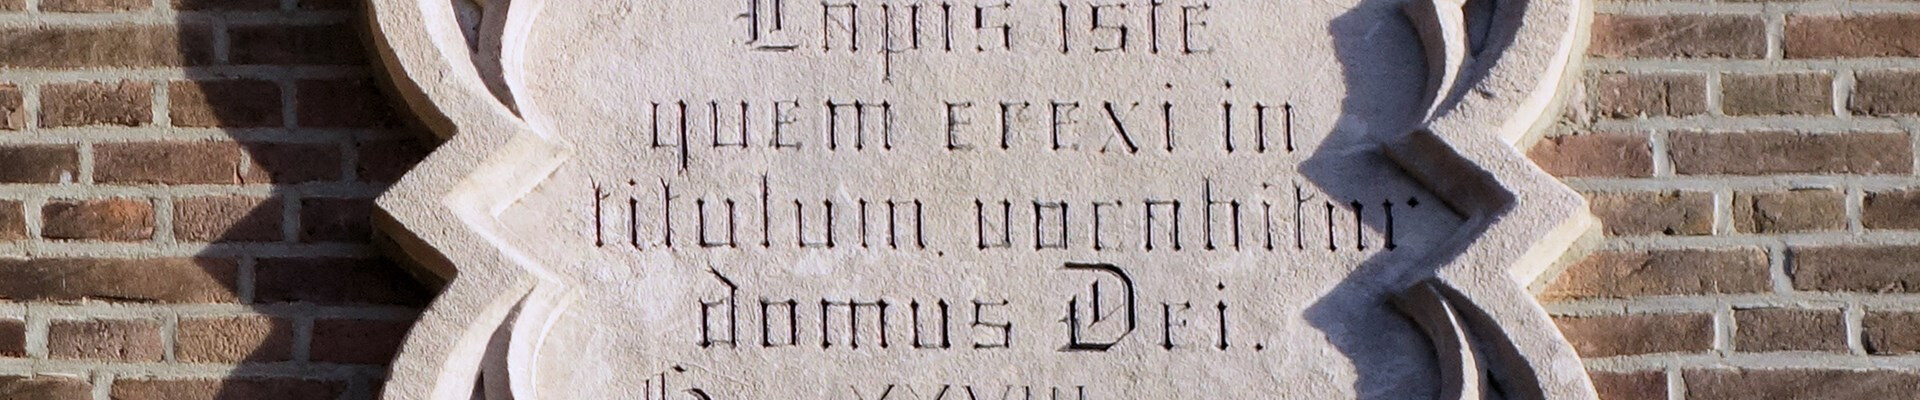 Lapis iste
quem erexi in
titulum, vocabitur
domus Dei.
G XXVIII